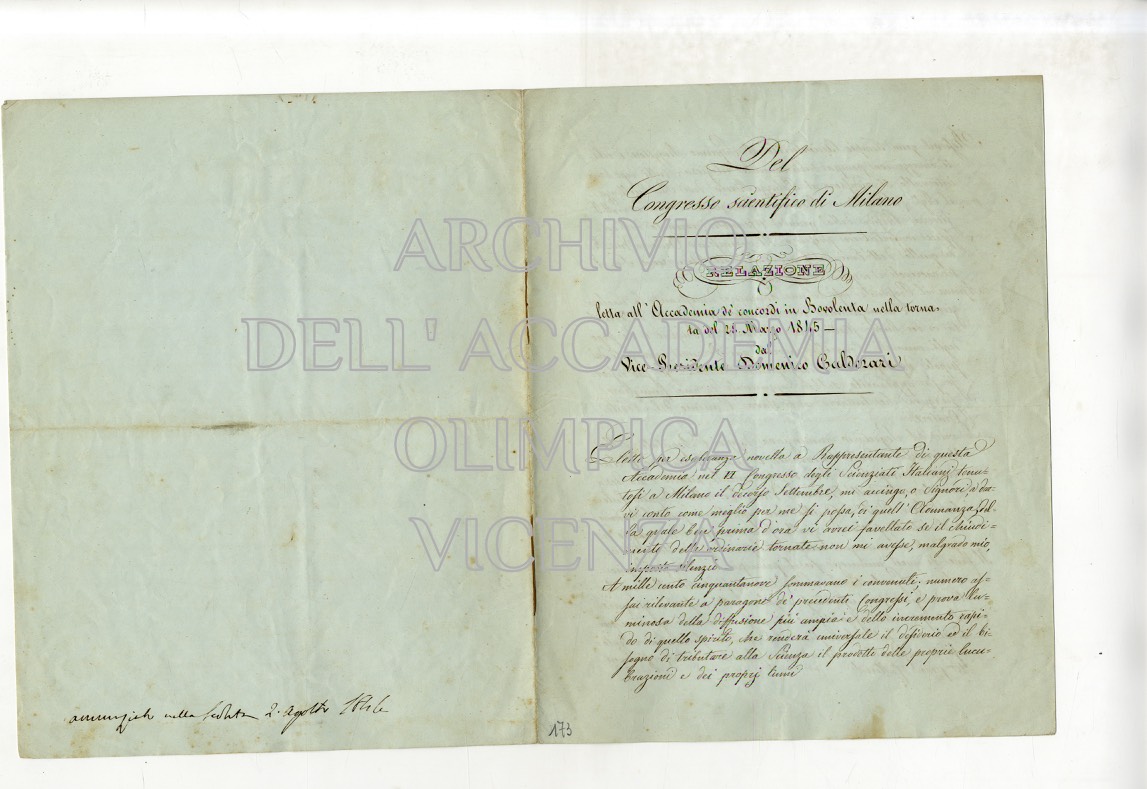 annunziato nella Seduta 2. Agosto 1846
Del
Congresso scientifico di Milano
RELAZIONE
letta all' Accademia de' concordi in Bovolenta nella torna-
ta del 25 Marzo 1845 —
da
Vice-Presidente Domenico
Eletto per esultanza novella a Rappresentante di questa
Accademia nel VI Congresso degli Scienziati Italiani tenu-
tosi a Milano il decorso Settembre, mi accingo, o Signori, a dar-
vi conto come meglio per me si possa, di quell' Adunanza, del-
la quale ben prima d'ora vi avrei favellato se il chiudi-
mento delle ordinarie tornate non mi avesse, malgrado mio,
imposto silenzio
A mille cento cinquantanove sommavano i convenuti; numero as-
sai rilevante a paragone de' precedenti Congressi, e prova lu-
minosa della diffusione più ampia e dello incremento rapi-
do di quello spirito, che renderà universale il desiderio ed il bi-
sogno di tributare alla Scienza il prodotto delle proprie lucu-
brazioni e dei proprj lumi
173
ARCHIVIO
DELL' ACCADEMIA
OLIMPICA
VICENZA